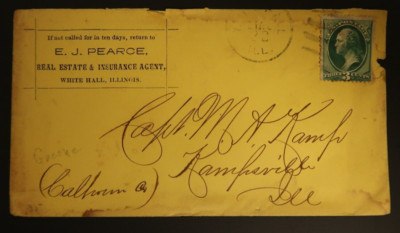 If not called for in ten days, return to
E. J. PEARCE,
REAL ESTATE & INSURANCE AGENT,
WHITE HALL, ILLINOIS.
Capt. M A Kamp
Kampsville
Ill
(Calhoun Co)